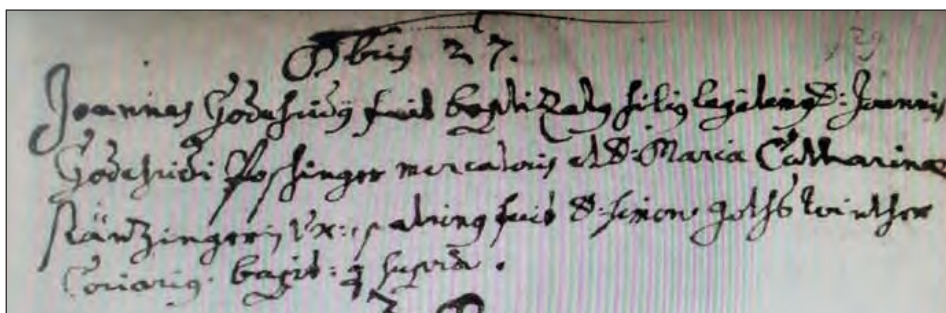 8bris 27.
Joannes Godefridus fuit baptizatus filius legitimus D: Joannis
Godefridi Poschinger mercatoris et D: Maria Catharina
Ux: patrinus fuit D: Simon
Coriarius. bapt: q supra.